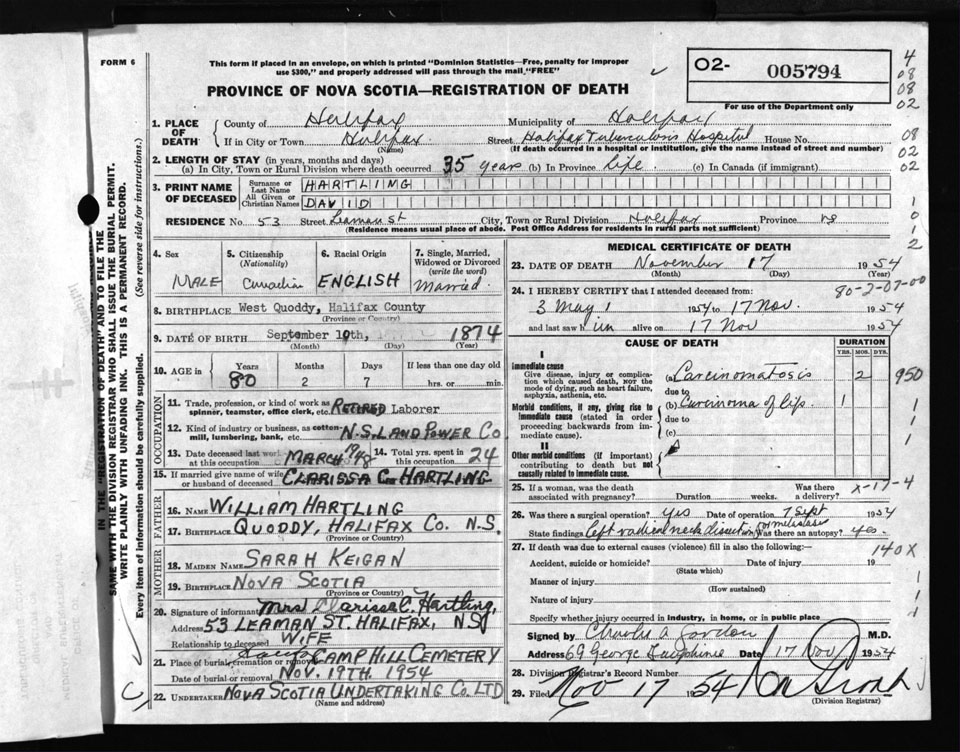 FORM 6
This form if placed in an envelope, on which is printed "Dominion Statistics—Free, penalty for improper
use $300," and properly addressed will pass through the mail "FREE"
O2- 005794
For use of the Department only
PROVINCE OF NOVA SCOTIA—REGISTRATION OF DEATH
4
08
08
02
08
02
02
1
0
1
2
SAME WITH THE DIVISION REGISTRAR WHO SHALL ISSUE THE BURIAL PERMIT.
WRITE PLAINLY WITH UNFADING INK. THIS IS A PERMANENT RECORD.
IN THE "REGISTRATION OF DEATH" AND TO FILE THE
Every item of information should be carefully supplied.
(See reverse side for instructions.)
1. PLACE OF DEATH County of Halifax Municipality of Halifax
If in City or Town Halifax. Street Halifax Tuberculosis Hospital House No.
(Name) (If death occurred in a hospital or institution, give the name instead of street and number)
2. LENGTH OF STAY (in years, months and days)
(a) In City, Town or Rural Division where death occurred 35 years (b) In Province Life (c) In Canada (if immigrant)
3. PRINT NAME OF DECEASED Surname or Last Name HARTLING
All Given or Christian Names DAVID
RESIDENCE No. 53 Street Leaman St City, Town or Rural Division Halifax Province NS
(Residence means usual place of abode. Post Office Address for residents in rural parts not sufficient)
4. Sex 5. Citizenship (Nationality) 6. Racial Origin 7. Single, Married, Widowed or Divorced (write the word)
MALE Canadian ENGLISH Married.
8. BIRTHPLACE West Quoddy, Halifax County
(Province or Country)
9. DATE OF BIRTH September 10th, 1874
(Month) (Day) (Year)
10. AGE in Years Months Days If less than one day old
80 2 7 hrs. or min.
OCCUPATION
11. Trade, profession, or kind of work as spinner, teamster, office clerk, etc. RETIRED Laborer
12. Kind of industry or business, as cotton-mill, lumbering, bank, etc. N.S. L AND POWER CO
13. Date deceased last worked at this occupation MARCH 1948 14. Total yrs. spent in this occupation 24
15. If married give name of wife or husband of deceased CLARISSA C. HARTLING
FATHER
16. NAME WILLIAM HARTLING
17. BIRTHPLACE QUODDY, HALIFAX CO. N.S.
(Province or Country)
MOTHER
18. MAIDEN NAME SARAH KEIGAN
19. BIRTHPLACE NOVA SCOTIA
(Province or Country)
20. Signature of informant Mrs Clarissa C. Hartling,
Address 53 LEAMAN ST. HALIFAX, NS
Relationship to deceased WIFE
21. Place of burial, cremation or removal CAMP HILL CEMETERY
Date of burial or removal NOV. 19TH. 1954
22. UNDERTAKER NOVA SCOTIA UNDERTAKING CO. LTD
(Name and address)
MEDICAL CERTIFICATE OF DEATH
23. DATE OF DEATH November 17 1954
(Month) (Day) (Year)
24. I HEREBY CERTIFY that I attended deceased from: 80-2-07-00
3 May 1954 to 17 Nov. 1954
and last saw him alive on 17 Nov 1954
CAUSE OF DEATH DURATION
YRS. MOS. DYS.
I
Immediate cause
Give disease, injury or complication which caused death, NOT the mode of dying, such as heart failure, asphyxia, asthenia, etc.
(a) Carcinomatosis 2 950
due to
Morbid conditions, if any, giving rise to immediate cause (stated in order proceeding backwards from immediate cause).
(b) Carcinoma of lip. 1 1
due to
(c) 1
II
Other morbid conditions (if important) contributing to death but not causally related to immediate cause.
25. If a woman, was the death associated with pregnancy? Duration weeks. Was there a delivery? X-17-4
26. Was there a surgical operation? Yes Date of operation 7 Sept 1954
State findings Left radical neck dissection for metastases Was there an autopsy? Yes.
27. If death was due to external causes (violence) fill in also the following:— 140X
Accident, suicide or homicide? Date of injury 19
(State which)
Manner of injury 1
(How sustained)
Nature of injury 1
Specify whether injury occurred in industry, in home, or in public place
Signed by Charles A Gordon M.D.
Address 69 George Dauphinee Date 17 Nov 1954
28. Division Registrar's Record Number
29. Filed Nov 17 1954
(Division Registrar)